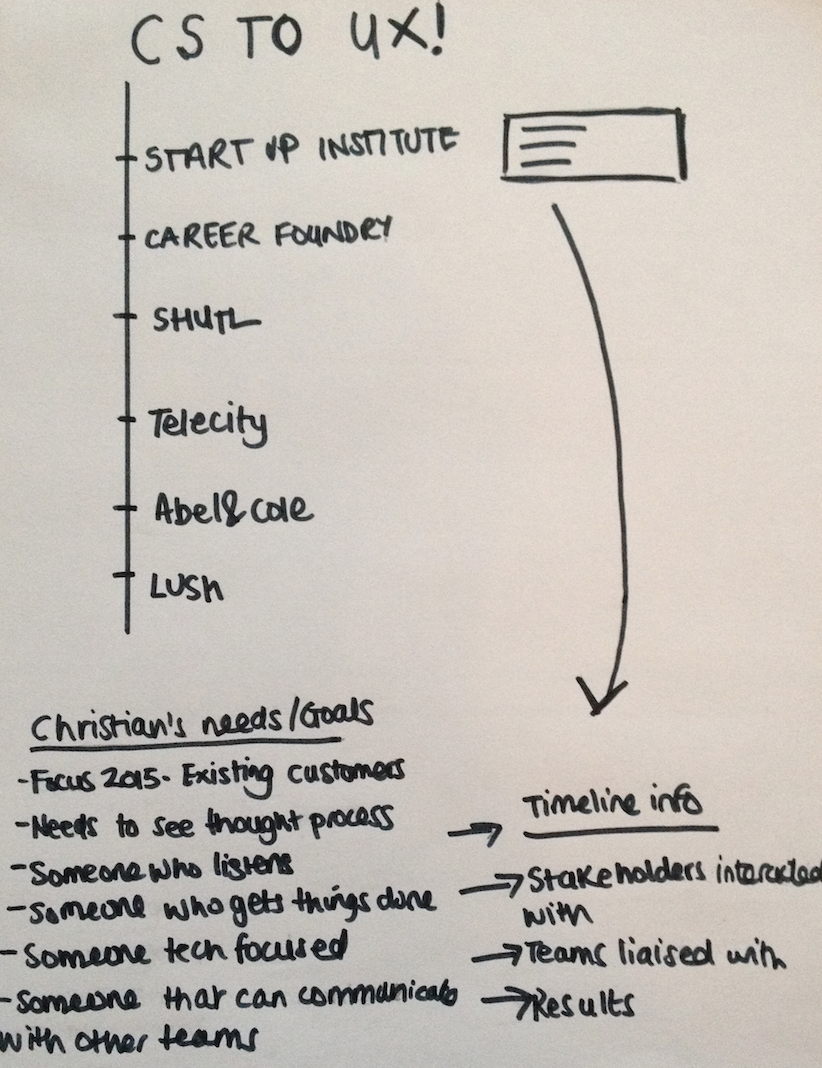 CS TO UX!
START UP INSTITUTE
CAREER FOUNDRY
SHUTL
Telecity
Abel&Cole
LUSH
Christian's needs/Goals
-Focus 2015- Existing customers
-Needs to see thought process
-Someone who listens
-Someone who gets things done
-Someone tech focused
-Someone that can communicate
with other teams
→ Timeline info
→ Stakeholders interacted
with
→ Teams liaised with
→ Results